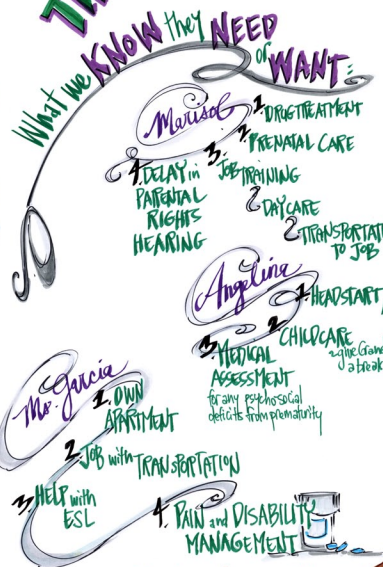 What we KNOW they NEED
or WANT...
Marisol
1. DRUG TREATMENT
2. PRENATAL CARE
3. JOB
TRAINING
DAYCARE
TRANSPORTAT
TO JOB
4. DELAY in
PARENTAL
RIGHTS
HEARING
Angelina
1. HEADSTART
2. CHILDCARE
give Gran
a break
3. MEDICAL
ASSESSMENT
for any psychosocial
deficits from prematurity
Ms. Garcia
1. OWN
APARTMENT
2. JOB with TRANSPORTATION
3. HELP with
ESL
4. PAIN and DISABILITY
MANAGEMENT